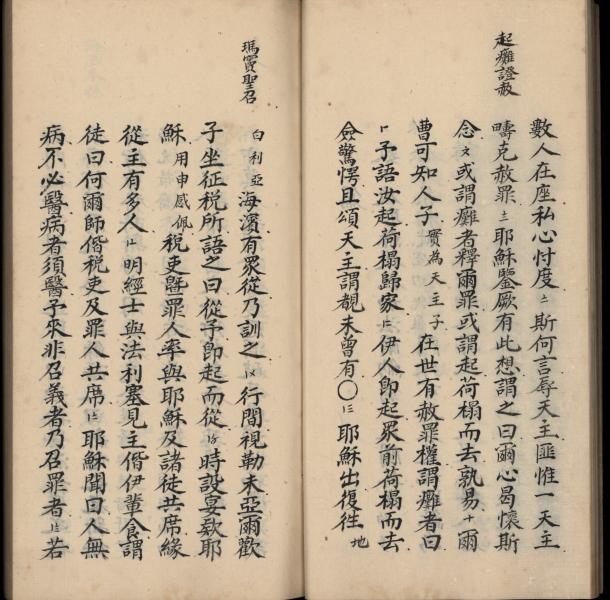 起癱證赦
數人在座私心忖度斯何言辱天主匪惟一天主
疇克赦罪耶穌鑒厥有此想謂之曰爾心曷懷斯
念或謂癱者釋爾罪或謂起荷榻而去孰易十爾
曹可知人子實為天主子在世有赦罪權謂癱者曰
予語汝起荷榻歸家伊人即起眾前荷榻而去
僉驚愕且頌天主謂覩未曾有〇耶穌出復往地
瑪竇聖召
白利亞海濱有眾從乃訓之行間視勒未亞爾歡
子坐征税所語之曰從予即起而從時設宴欵耶
穌用申感佩税吏暨罪人率與耶穌及諸徒共席緣
從主有多人明經士與法利塞見主偕伊輩食謂
徒曰何爾師偕税吏及罪人共席耶穌聞曰人無
病不必醫病者須醫予來非召義者乃召罪者若